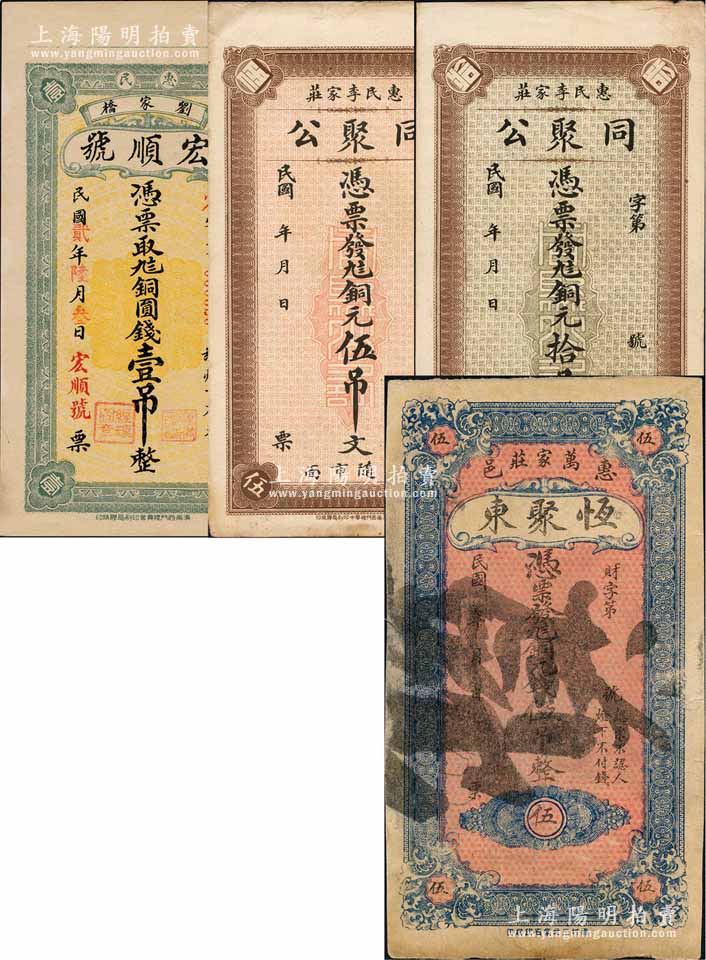 上海陽明拍賣
www.yangmingauction.com
惠民
劉家橋
宏順號
憑票取九銅圓錢壹吊整
民國貳年陸月叁日宏順號票
壹
壹
惠民李家莊
同聚公
憑票發九銅元伍吊文
民國 年 月 日
票
伍
惠民李家莊
同聚公
字第 號
憑票發九銅元拾
民國 年 月 日
上海陽明拍賣
www.yangmingauction.com
伍
伍
惠邑萬家莊
恆聚東
財字第 號
憑票發九銅元錢伍吊整
認人
燈下不付錢
民國
票
伍
伍
伍
上海陽明拍賣
www.yangmingauction.com